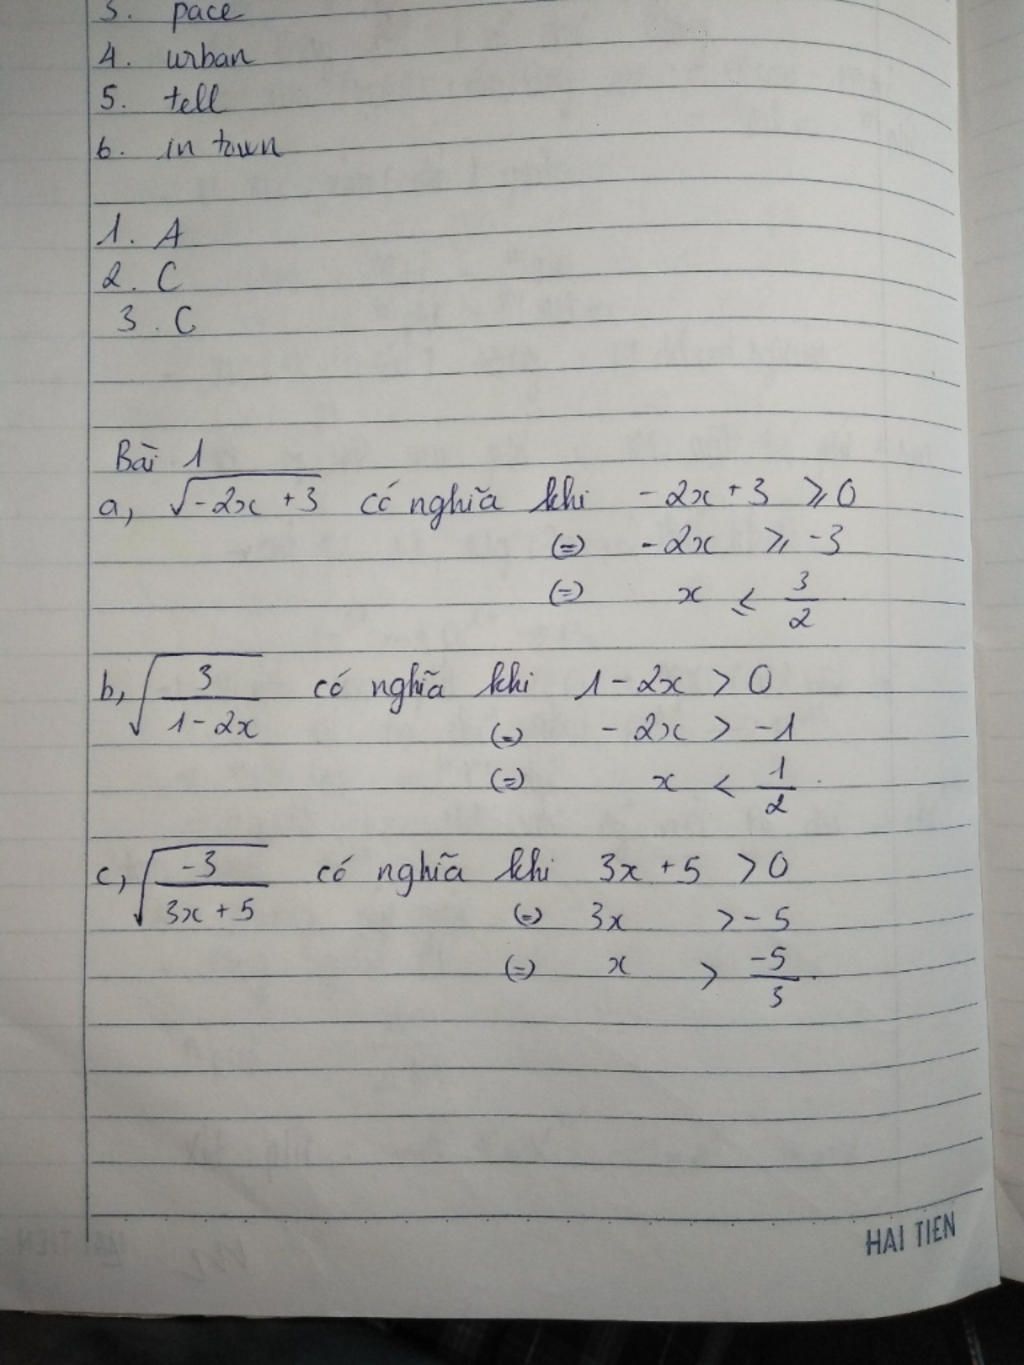 3. pace
4. urban
5. tell
6. in town
1. A
2. C
3. C
Bài 1
a, √(-2x + 3) có nghĩa khi -2x + 3 ⩾ 0
(=) -2x ⩾ -3
(=) x ≤ 3/2.
b, √(3/(1 - 2x)) có nghĩa khi 1 - 2x > 0
(=) - 2x > -1
(=) x < 1/2.
c, √(-3/(3x + 5)) có nghĩa khi 3x + 5 > 0
(=) 3x > - 5
(=) x > -5/3.
HẢI TIẾN